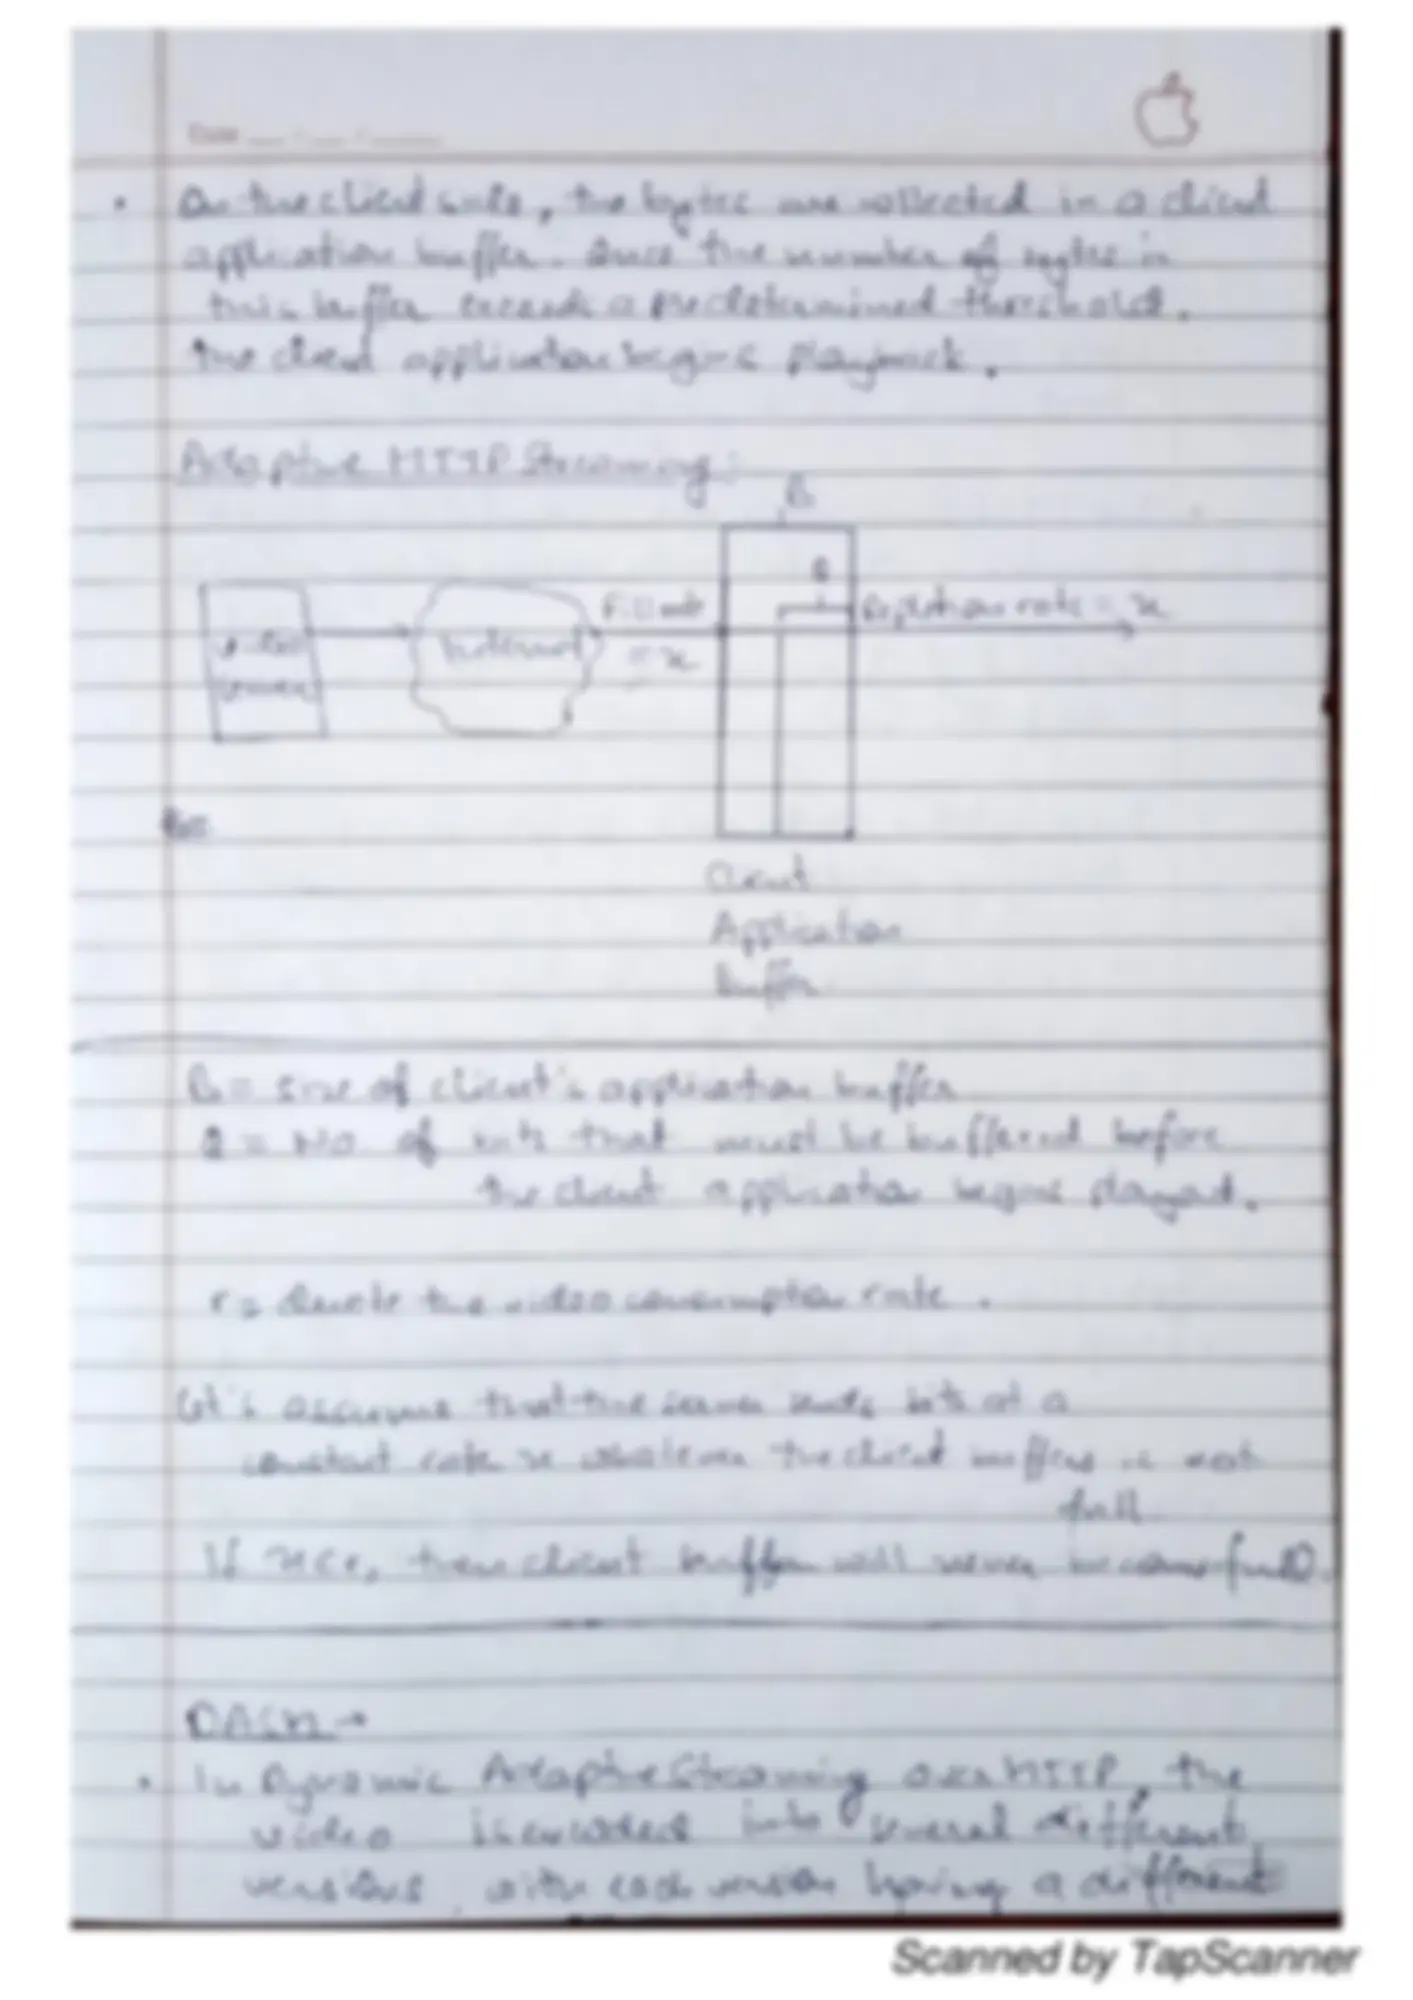 Date
On the client side, the bytes are collected in a client
application buffer. Once the number of bytes in
this buffer exceeds a predetermined threshold,
the client application begins playback.
Adaptive HTTP Streaming:
B
Q
Video
server
Internet
Fill rate
= x
Depletion rate = x
Client
Application
Buffer
B = size of client's application buffer
Q = No of bits that must be buffered before
the client application begins playout.
r = denote the video consumption rate.
Let's assume that the server sends bits at a
constant rate x whenever the client buffers is not
full
If x<r, then client buffer will never become full.
DASH →
In Dynamic Adaptive Streaming over HTTP, the
video is encoded into several different
versions, with each version having a different
Scanned by TapScanner